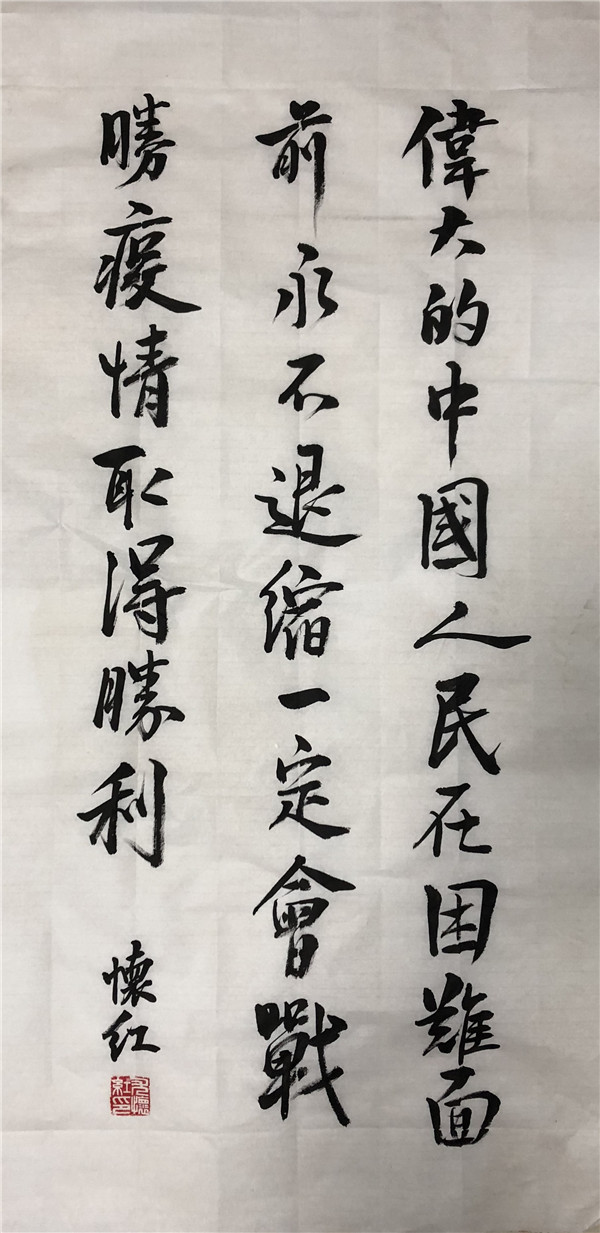 偉大的中國人民在困難面
前永不退縮一定會戰
勝疫情取得勝利
懷紅